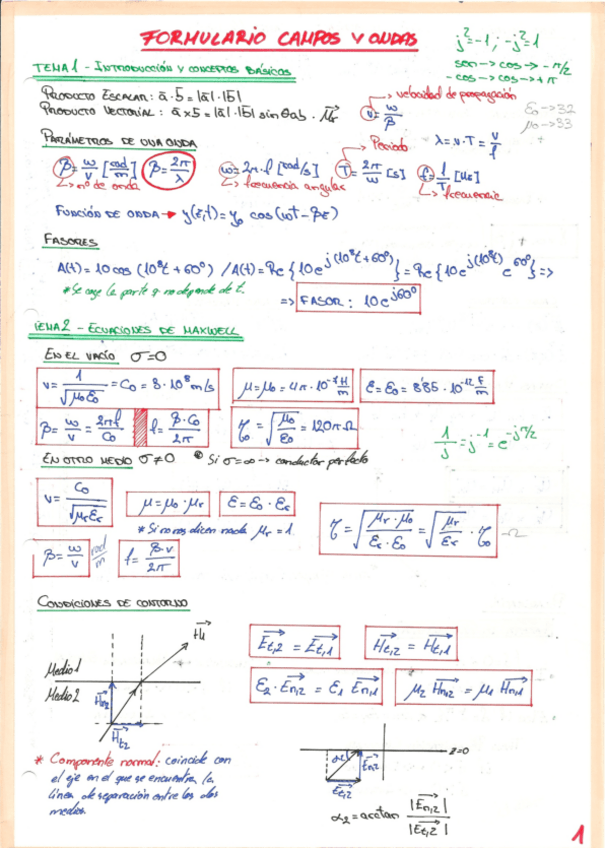 FORMULARIO CAMPOS Y ONDAS
j²=-1 ; -j²=1
sen → cos → -π/2
-cos → cos → +π
TEMA 1 - INTRODUCCIÓN Y CONCEPTOS BÁSICOS
PRODUCTO ESCALAR: ā·b̄ = |ā|·|b̄|
PRODUCTO VECTORIAL: ā×b̄ = |ā|·|b̄| sin θab ·
velocidad de propagación
v = w/β
ε₀ → 32
μ₀ → 33
PARÁMETROS DE UNA ONDA
Periodo
λ = v·T = v/f
β = w/v [rad/m]
β = 2π/λ
w = 2π·f [rad/s]
T = 2π/w [s]
f = 1/T [Hz]
nº de onda
frecuencia angular
frecuencia
FUNCIÓN DE ONDA → y(z,t) = y₀ cos(wt - βz)
FASORES
A(t) = 10 cos (10⁸t + 60º) / A(t) = Re{10e^j(10⁸t+60º)} = Re{10e^j(10⁸t) e^60º} =>
*Se coge la parte q no depende de t.
=> FASOR: 10e^j60º
TEMA 2 - ECUACIONES DE MAXWELL
EN EL VACÍO σ=0
v = 1/√(μ₀ε₀) = C₀ = 3·10⁸ m/s
μ = μ₀ = 4π·10⁻⁷ H/m
ε = ε₀ = 8'85·10⁻¹² F/m
β = w/v = 2πf/C₀
f = β·C₀/2π
ζ₀ = √(μ₀/ε₀) = 120π Ω
1/j = j⁻¹ = e^-jπ/2
EN OTRO MEDIO σ≠0
* Si σ=∞ → conductor perfecto
v = C₀/√(μrεr)
μ = μ₀·μr
ε = ε₀·εr
*Si no nos dicen nada μr = 1.
ζ = √(μr·μ₀/εr·ε₀) = √(μr/εr)·ζ₀
Ω
β = w/v rad/m
f = β·v/2π
CONDICIONES DE CONTORNO
Medio 1
Medio 2
Hn2
Ht2
Et,2 = Et,1
Ht,2 = Ht,1
ε₂·En,2 = ε₁ En,1
μ₂ Hn,2 = μ₁ Hn,1
* Componente normal: coincide con
el eje en el que se encuentra la
línea de separación entre los dos
medios.
z=0
α₂
En,2
Et,2
α₂ = arctan |En,2|/|Et,2|
1